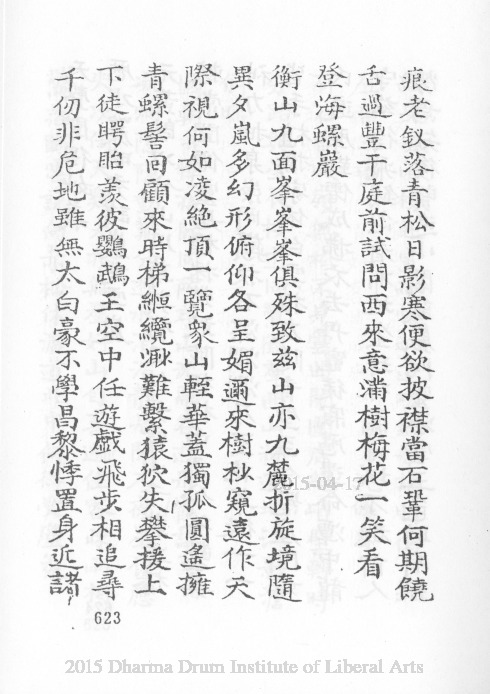 痕老釵落青松日影寒便欲披襟當石鞏何期饒
舌過豐干庭前試問西來意滿樹梅花一笑看
登海螺巖
衡山九面峯峯峯俱殊致玆山亦九麓折旋境隨
異夕嵐多幻形俯仰各呈媚邇來樹杪窺遠作天
際視何如凌絶頂一覽衆山輊華蓋獨孤圓遙擁
青螺髻回顧來時梯縆纜漵難繫猿狖失攀援上
下徒睜眙羨彼鸚鵡王空中任遊戲飛步相追尋
千仞非危地雖無太白豪不學昌黎悸置身近諸
623
2015-04-17
2015 Dharma Drum Institute of Liberal Arts